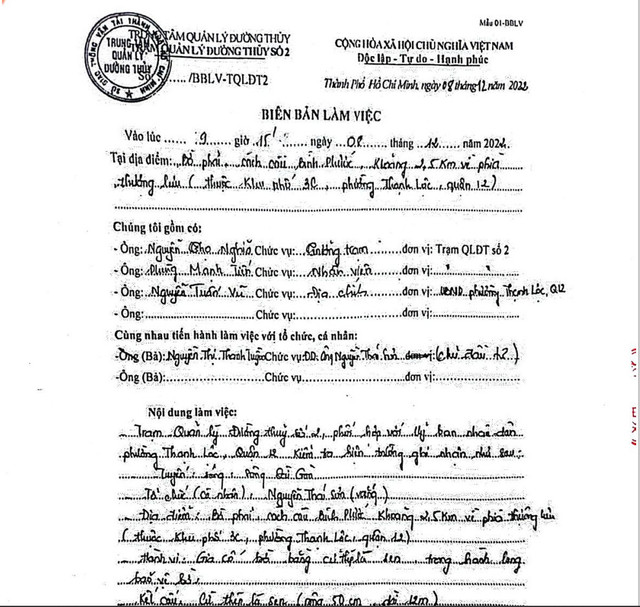 Mẫu 01-BBLV
TRUNG TÂM QUẢN LÝ ĐƯỜNG THỦY
TRẠM QUẢN LÝ ĐƯỜNG THỦY SỐ 2
Số ...../BBLV-TQLĐT2
TRUNG TÂM
QUẢN LÝ
ĐƯỜNG THỦY
CỘNG HÒA XÃ HỘI CHỦ NGHĨA VIỆT NAM
Độc lập - Tự do - Hạnh phúc
Thành Phố Hồ Chí Minh, ngày 08 tháng 12 năm 2022
BIÊN BẢN LÀM VIỆC
Vào lúc ...... 9 .... giờ ..15'.... ngày ....08...... tháng ...12.... năm 2022.
Tại địa điểm: Bờ phải, cách cầu Bình Phước, khoảng 2,5 Km về phía
thượng lưu (thuộc Khu phố 3C, phường Thạnh Lộc, quận 12)
Chúng tôi gồm có:
- Ông: Nguyễn Nghĩa Chức vụ: trạm đơn vị: Trạm QLĐT số 2
- Ông: Phùng Mạnh Chức vụ: Nhân viên đơn vị: " "
- Ông: Nguyễn Tuấn Vũ Chức vụ: Địa chính đơn vị: UBND phường Thạnh Lộc, Q12
- Ông: Chức vụ: đơn vị:
Cùng nhau tiến hành làm việc với tổ chức, cá nhân:
- Ông (Bà): Nguyễn Thị Thanh Tuyền Chức vụ: DD. ông Nguyễn Thái Sơn đơn vị: (chủ đầu t2)
- Ông (Bà): Chức vụ đơn vị:
Nội dung làm việc:
Trạm Quản lý Đường thuỷ số 2, phối hợp với Uỷ ban nhân dân
phường Thạnh Lộc, Quận 12 kiểm tra hiện trường ghi nhận như sau:
Tuyến sông: sông Sài Gòn
Tổ chức (cá nhân): Nguyễn Thái Sơn (vắng)
Địa điểm: Bờ phải, cách cầu Bình Phước khoảng 2,5 Km về phía thượng lưu
(thuộc Khu phố 3C, phường Thạnh Lộc, quận 12)
Hành vi: Gia cố bờ bằng cừ thép lá sen, trong hành lang
bảo vệ bờ.
Kết cấu: Cừ thép lá sen (rộng 50 cm, dài 12m)